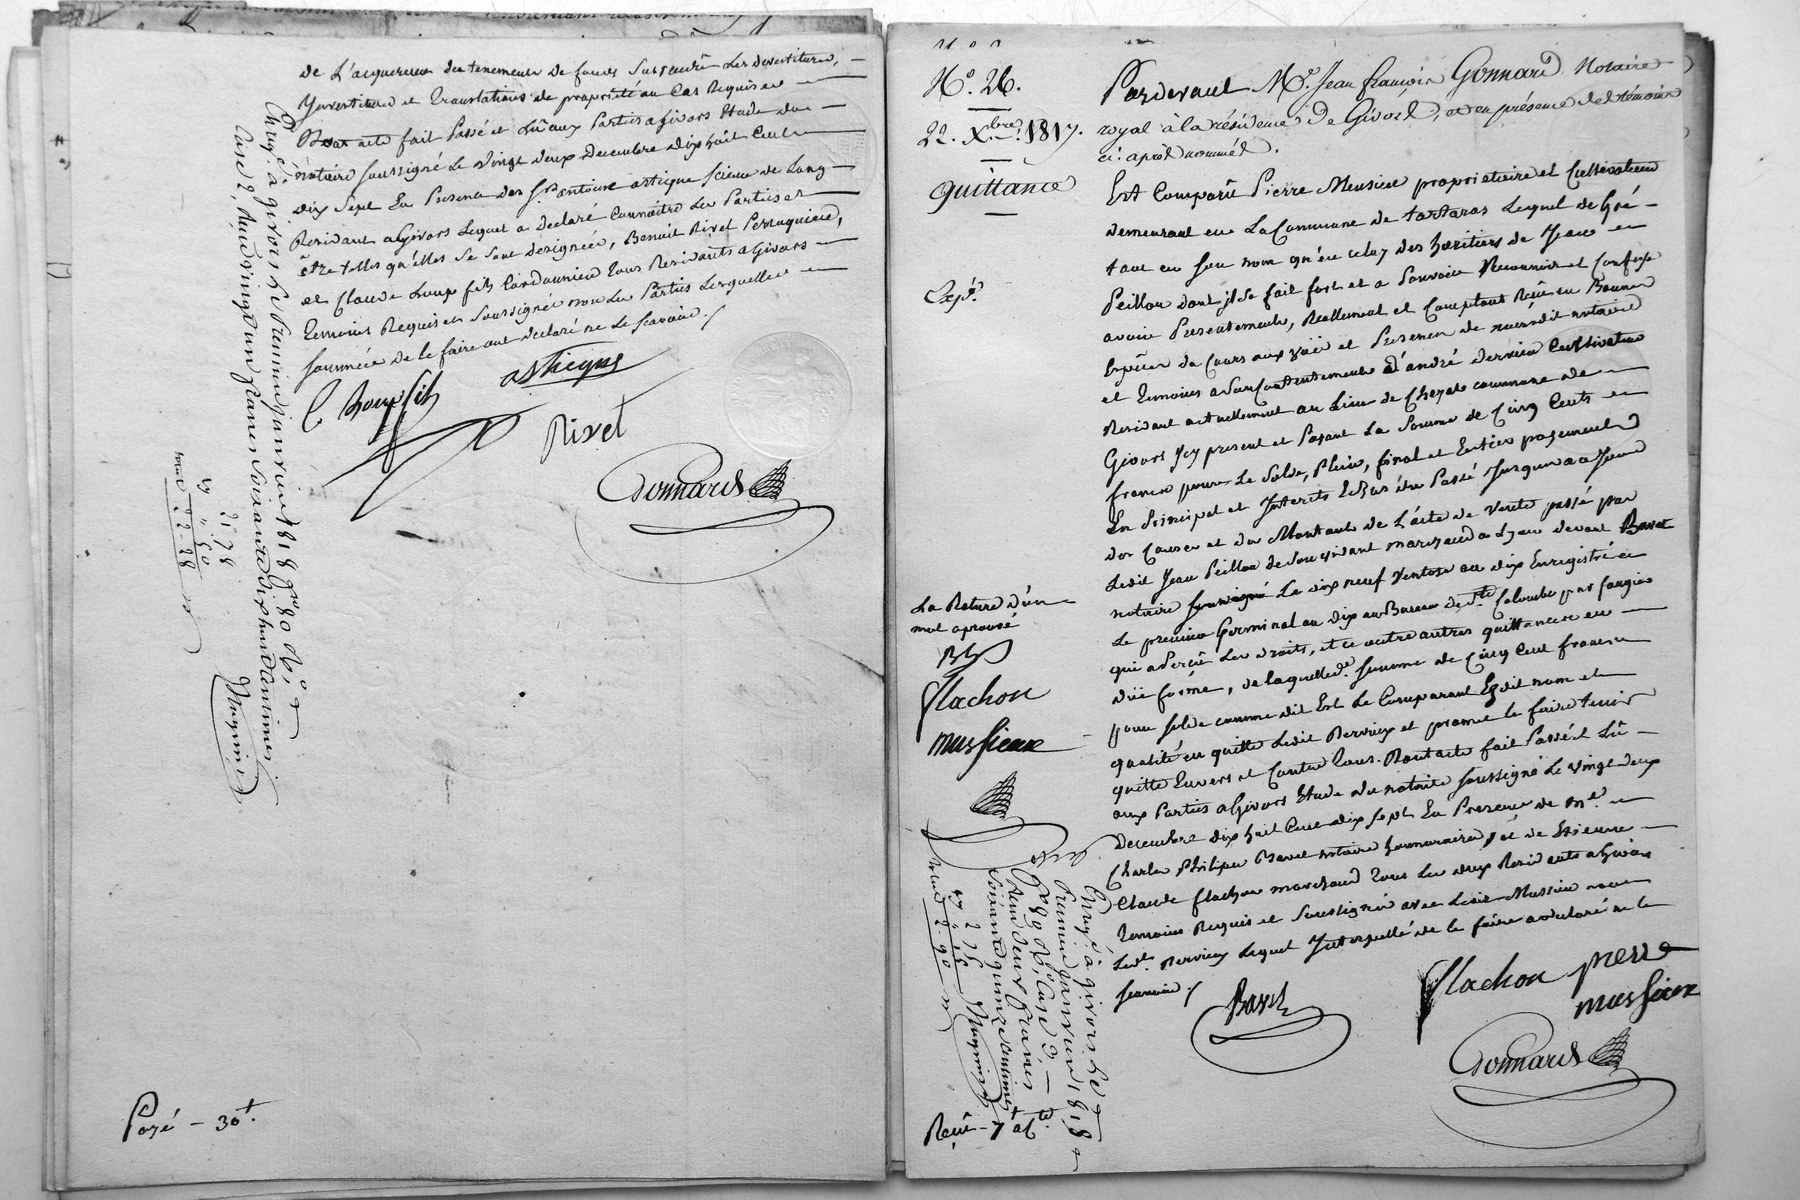 de L'acquereur des tenements de fonds sus vendu Les devestitures,
Investiture et translations de propriété au Cas Requis en
Dont acte fait Passé et Lû aux Parties a Givors Etude du
notaire soussigné Le vingt deux Decembre dix huit Cent
dix Sept En Presence des Srs antoine astieque scieur de Long
Residant a Givors Lequel a declaré Connaitre Les Parties et
être telles qu'elles se sont designées, Benoit Rivet Perruquier,
et Claude houp fils Cordonnier tous Residants a Givors
temoins Requis et Soussignés non Les Parties Lesquelles
sommées de le faire ont declaré ne le scavoir ./
C. houp fils
astieque
Rivet
Gonnard
Enrgé à givors le Premier janvier 1818 fo 80 Ro
Case 2, Reçu vingt un francs soixante dix huit centimes
21.78
" 50
22.28
Payé - 30 f.
No. 26.
22. Xbre 1817.
quittance
Expé.
Pardevant Me. Jean françois Gonnard Notaire
royal à la résidence de Givors, et en présence des témoins
ci-après nommés.
Est Comparû Pierre Meusieu proprietaire et Cultivateur
demeurant en La Commune de tartaras Lequel de Gré
tant en son nom qu'en celuy des heritiers de Jean
Peillon dont il se fait fort et a Pouvoir Reconnoit et Confesse
avoir Presentement, Reellement et Comptant Reçu en Bonnes
Espèces de Cours aux vüe et Presence de nousdit notaire
et temoins a son Contentement d'andré Dervieux Cultivateur
Residant actuellement au Lieu de Cheyas commune de
Givors Icy present et Payant La Somme de Cinq Cents
francs pour Le Solde, Plein, final et Entier payement
En Principal et Interets Echus du Passé Jusqu'a ce Jour
des Causes et du Montant de L'acte de vente passé par
Ledit Jean Peillon de son vivant marchand a Lyon devant Bavet
notaire soussigné Le dix neuf Ventose an dix Enregistré
Le premier Germinal an dix au Bureau de Ste Colombe par fargier
qui a Perçû Les droits, et ce outre autres quittances en
düe forme, de laquelle de. Somme de Cinq Cent francs
pour solde comme dit Est Le Comparant Esdit nom et
qualité en quitte Ledit Dervieux et promet le faire tenir
quitte Envers et Contre tous. Dont acte fait Passé et Lû
aux Parties a Givors Etude du notaire soussigné Le vingt deux
Decembre dix huit Cent dix sept En Presence de Me.
Charles Philippe Bavet notaire honnoraire et de Etienne
Claude flachon marchand tous Les deux Residants a Givors
temoins Requis et Soussignés avec Ledit Meusieu non
Ledt. Dervieux Lequel Interpellé de le faire a declaré ne le
scavoir ./
Bavet
flachon
pierre
mussieux
Gonnard
La Rature d'un
mot aprouvé
flachon
mussieux
Enrgé à givors le
Premier janvier 1818
fo 80 Ro, Case 3
Reçu deux francs
soixante quinze centimes
2.75
Reçu - 7 f